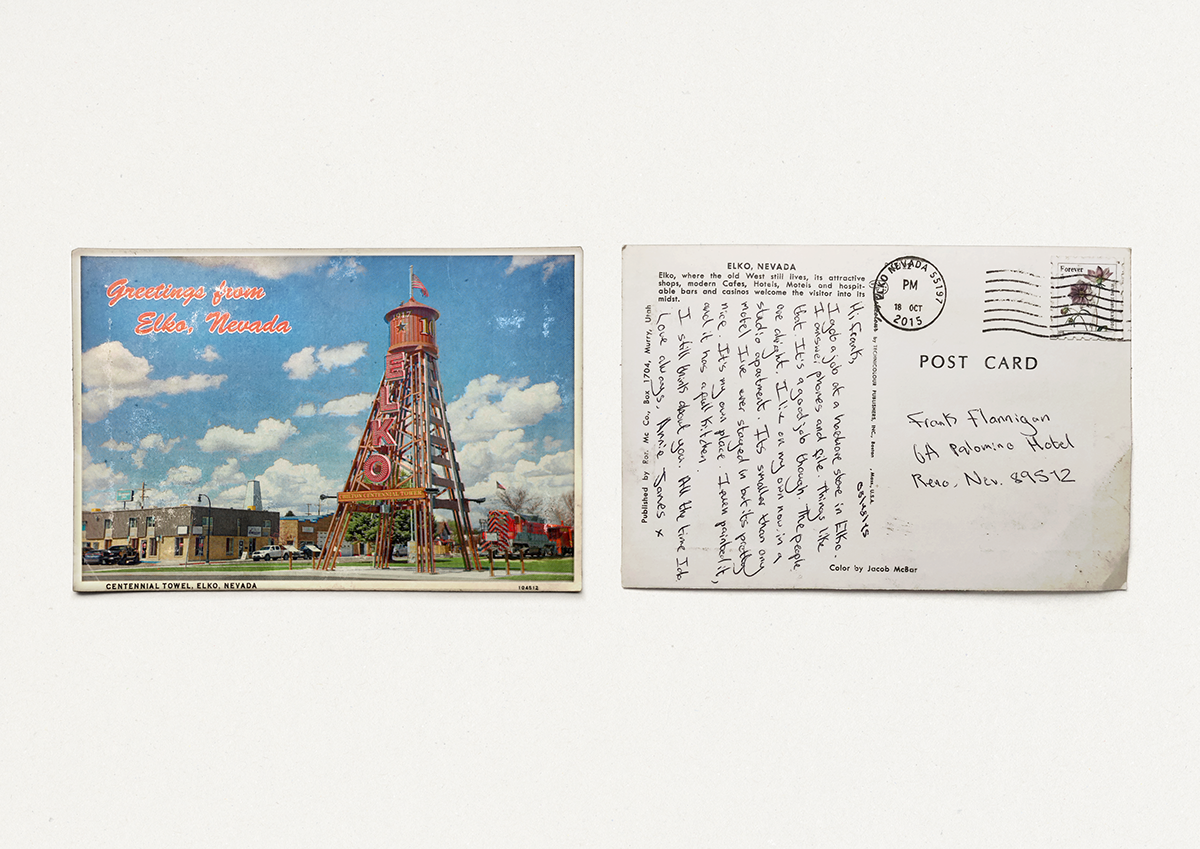 Greetings from
Elko, Nevada
1917
ELKO
CHILTON CENTENNIAL TOWER
CENTENNIAL TOWEL, ELKO, NEVADA
104512
ELKO, NEVADA
Elko, where the old West still lives, its attractive
shops, modern Cafes, Hotels, Motels and hospit-
able bars and casinos welcome the visitor into its
midst.
Published by Ror. Mc Co., Box 1704, Murry, Utah
Hi Frank,
I got a job at a hardware store in Elko.
I answer phones and file things like
that. It's a good job though. The people
are alright. I live on my own now in a
studio apartment. It's smaller than any
motel I've ever stayed in but it's pretty
nice. It's my own place. I even painted it,
and it has a full kitchen.
I still think about you. All the time I do.
Love always, Annie Jones x
by TECHNICOLOUR PUBLISHERS, INC., Boston, Mass., U.S.A.
ELKO NEVADA SS197
PM
18 OCT
2015
Forever
POST CARD
Frank Flannigan
6A Palomino Hotel
Reno, Nev. 89512
Color by Jacob McBar